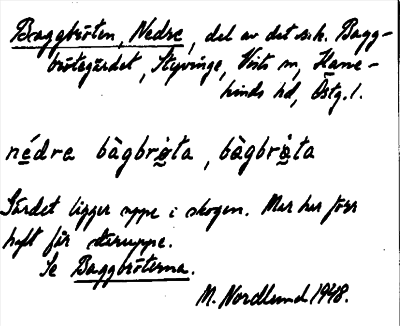 Baggbröten, Nedre, del av det s.k. Bagg-
brötegärdet, Styvinge, Vists sn, Hane-
kinds hd, Östg. l.
nédra bàgbrø̀ta, bàgbrø̀ta
Gärdet ligger uppe i skogen. Man har förr
haft får däruppe.
Se Baggbröterna.
M. Nordlund 1948.